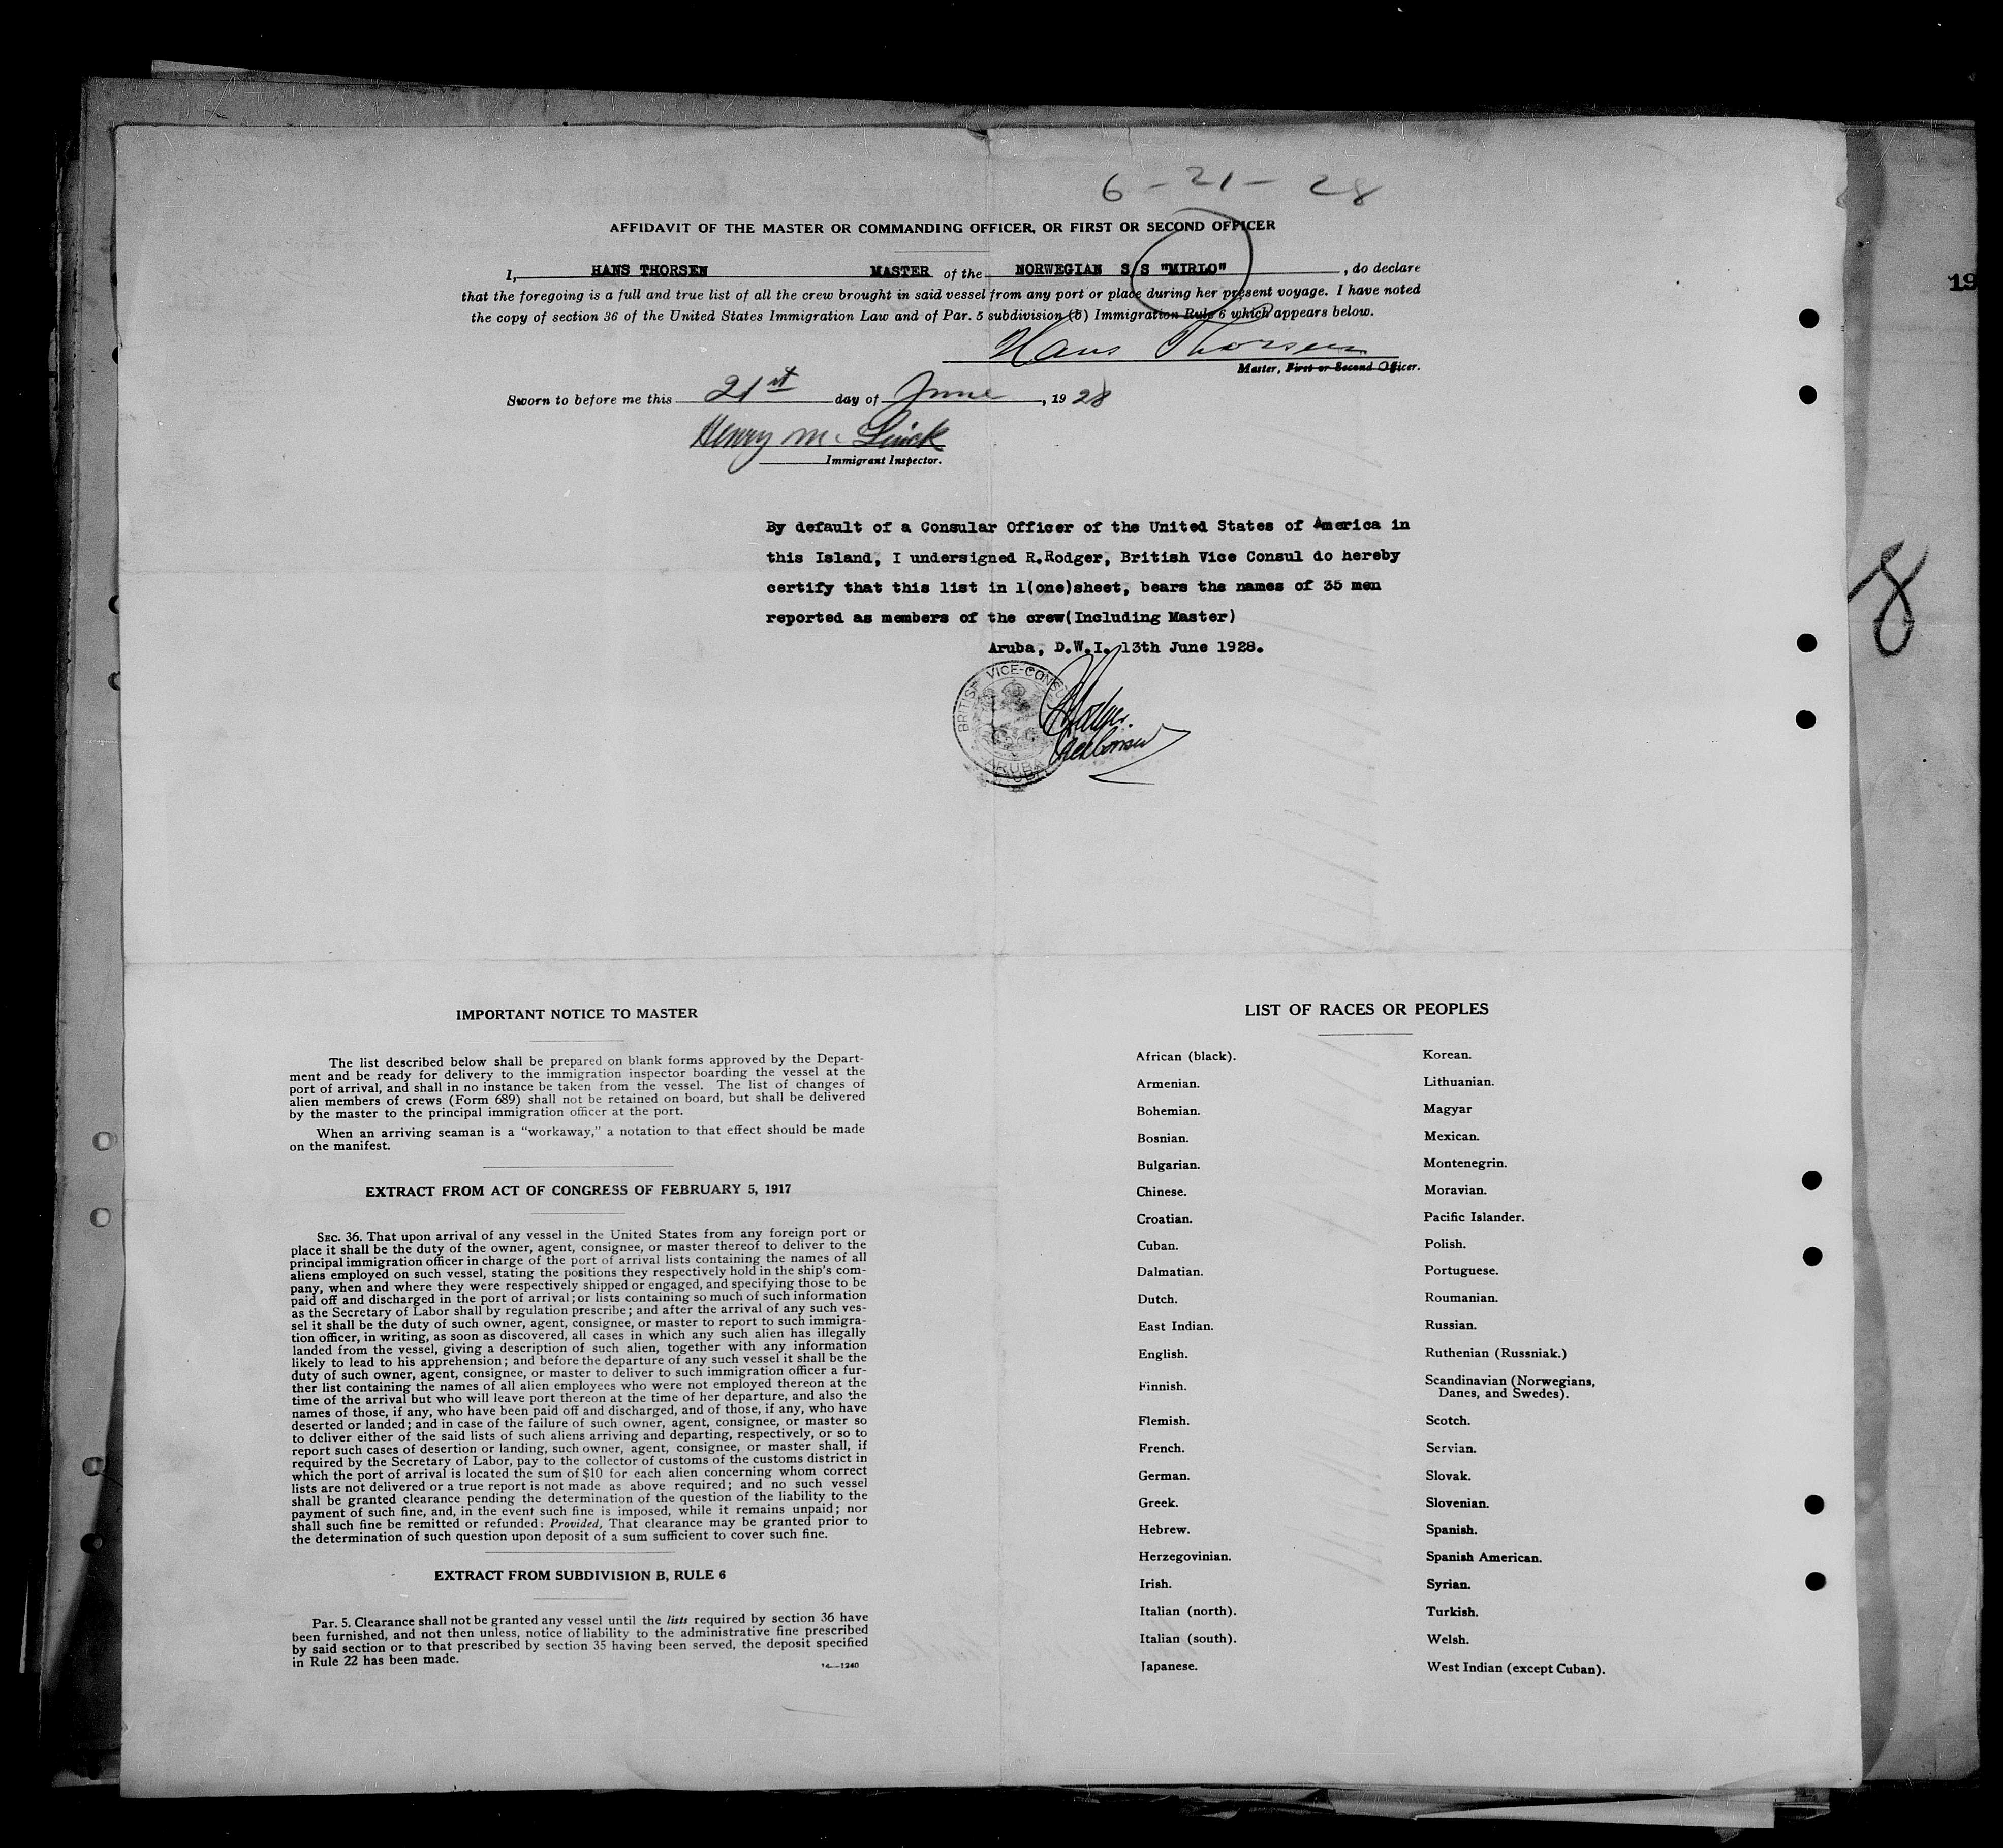 6-21-28
AFFIDAVIT OF THE MASTER OR COMMANDING OFFICER, OR FIRST OR SECOND OFFICER
I, HANS THORSEN MASTER of the NORWEGIAN S/S "MIRLO", do declare
that the foregoing is a full and true list of all the crew brought in said vessel from any port or place during her present voyage. I have noted
the copy of section 36 of the United States Immigration Law and of Par. 5 subdivision (b) Immigration Rule 6 which appears below.
Hans Thorsen
Master, First or Second Officer.
Sworn to before me this 21st day of June, 1928
Henry Mc
Immigrant Inspector.
19
8
By default of a Consular Officer of the United States of America in
this Island, I undersigned R.Rodger, British Vice Consul do hereby
certify that this list in 1(one)sheet, bears the names of 35 men
reported as members of the crew(Including Master)
Aruba, D.W.I. 13th June 1928.
BRITISH VICE-CONSUL
ARUBA
IMPORTANT NOTICE TO MASTER
The list described below shall be prepared on blank forms approved by the Depart-
ment and be ready for delivery to the immigration inspector boarding the vessel at the
port of arrival, and shall in no instance be taken from the vessel. The list of changes of
alien members of crews (Form 689) shall not be retained on board, but shall be delivered
by the master to the principal immigration officer at the port.
When an arriving seaman is a "workaway," a notation to that effect should be made
on the manifest.
EXTRACT FROM ACT OF CONGRESS OF FEBRUARY 5, 1917
SEC. 36. That upon arrival of any vessel in the United States from any foreign port or
place it shall be the duty of the owner, agent, consignee, or master thereof to deliver to the
principal immigration officer in charge of the port of arrival lists containing the names of all
aliens employed on such vessel, stating the positions they respectively hold in the ship's com-
pany, when and where they were respectively shipped or engaged, and specifying those to be
paid off and discharged in the port of arrival; or lists containing so much of such information
as the Secretary of Labor shall by regulation prescribe; and after the arrival of any such ves-
sel it shall be the duty of such owner, agent, consignee, or master to report to such immigra-
tion officer, in writing, as soon as discovered, all cases in which any such alien has illegally
landed from the vessel, giving a description of such alien, together with any information
likely to lead to his apprehension; and before the departure of any such vessel it shall be the
duty of such owner, agent, consignee, or master to deliver to such immigration officer a fur-
ther list containing the names of all alien employees who were not employed thereon at the
time of the arrival but who will leave port thereon at the time of her departure, and also the
names of those, if any, who have been paid off and discharged, and of those, if any, who have
deserted or landed; and in case of the failure of such owner, agent, consignee, or master so
to deliver either of the said lists of such aliens arriving and departing, respectively, or so to
report such cases of desertion or landing, such owner, agent, consignee, or master shall, if
required by the Secretary of Labor, pay to the collector of customs of the customs district in
which the port of arrival is located the sum of $10 for each alien concerning whom correct
lists are not delivered or a true report is not made as above required; and no such vessel
shall be granted clearance pending the determination of the question of the liability to the
payment of such fine, and, in the event such fine is imposed, while it remains unpaid; nor
shall such fine be remitted or refunded: Provided, That clearance may be granted prior to
the determination of such question upon deposit of a sum sufficient to cover such fine.
EXTRACT FROM SUBDIVISION B, RULE 6
Par. 5. Clearance shall not be granted any vessel until the lists required by section 36 have
been furnished, and not then unless, notice of liability to the administrative fine prescribed
by said section or to that prescribed by section 35 having been served, the deposit specified
in Rule 22 has been made.
14—1240
LIST OF RACES OR PEOPLES
African (black).
Armenian.
Bohemian.
Bosnian.
Bulgarian.
Chinese.
Croatian.
Cuban.
Dalmatian.
Dutch.
East Indian.
English.
Finnish.
Flemish.
French.
German.
Greek.
Hebrew.
Herzegovinian.
Irish.
Italian (north).
Italian (south).
Japanese.
Korean.
Lithuanian.
Magyar
Mexican.
Montenegrin.
Moravian.
Pacific Islander.
Polish.
Portuguese.
Roumanian.
Russian.
Ruthenian (Russniak.)
Scandinavian (Norwegians,
Danes, and Swedes).
Scotch.
Servian.
Slovak.
Slovenian.
Spanish.
Spanish American.
Syrian.
Turkish.
Welsh.
West Indian (except Cuban).